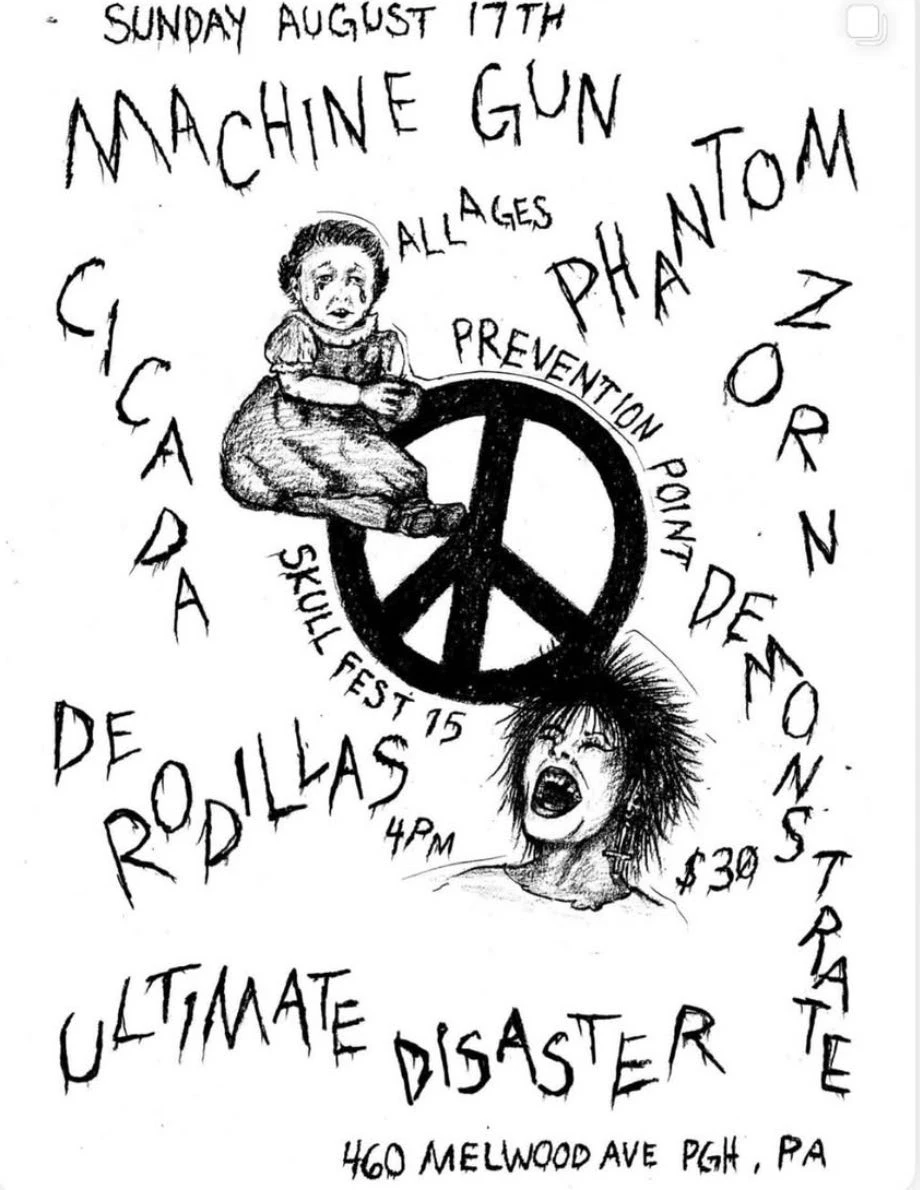 SUNDAY AUGUST 17TH
MACHINE GUN
PHANTOM
ALL AGES
CICADA
ZORN
PREVENTION POINT
SKULL FEST 15
DEMONSTRATE
DE
RODILLAS
4PM
$30
ULTIMATE
DISASTER
460 MELWOOD AVE PGH, PA